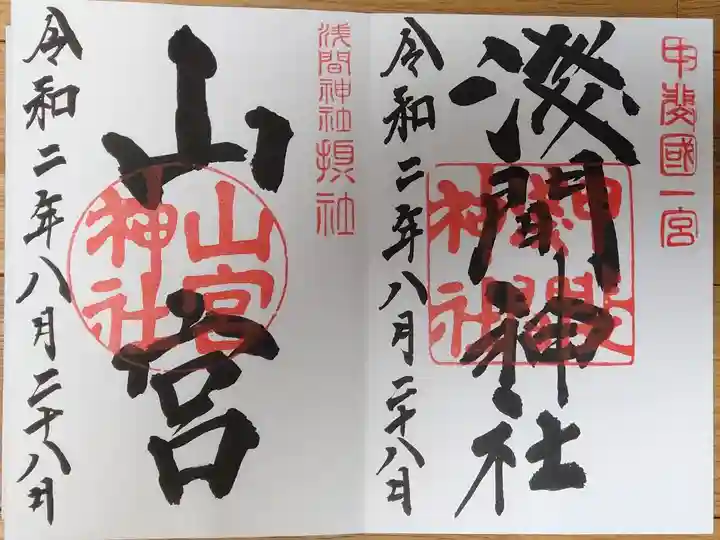 甲斐國一宮
浅間神社
浅間神社
令和二年八月二十八日
浅間神社摂社
山宮
山宮
神社
令和二年八月二十八日